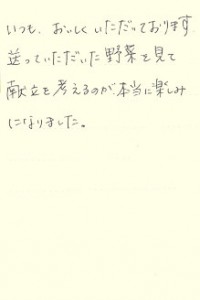 いつも、おいしくいただっております
送っていただいた野菜を見て
献立を考えるのが、本当に楽しみ
になりました。